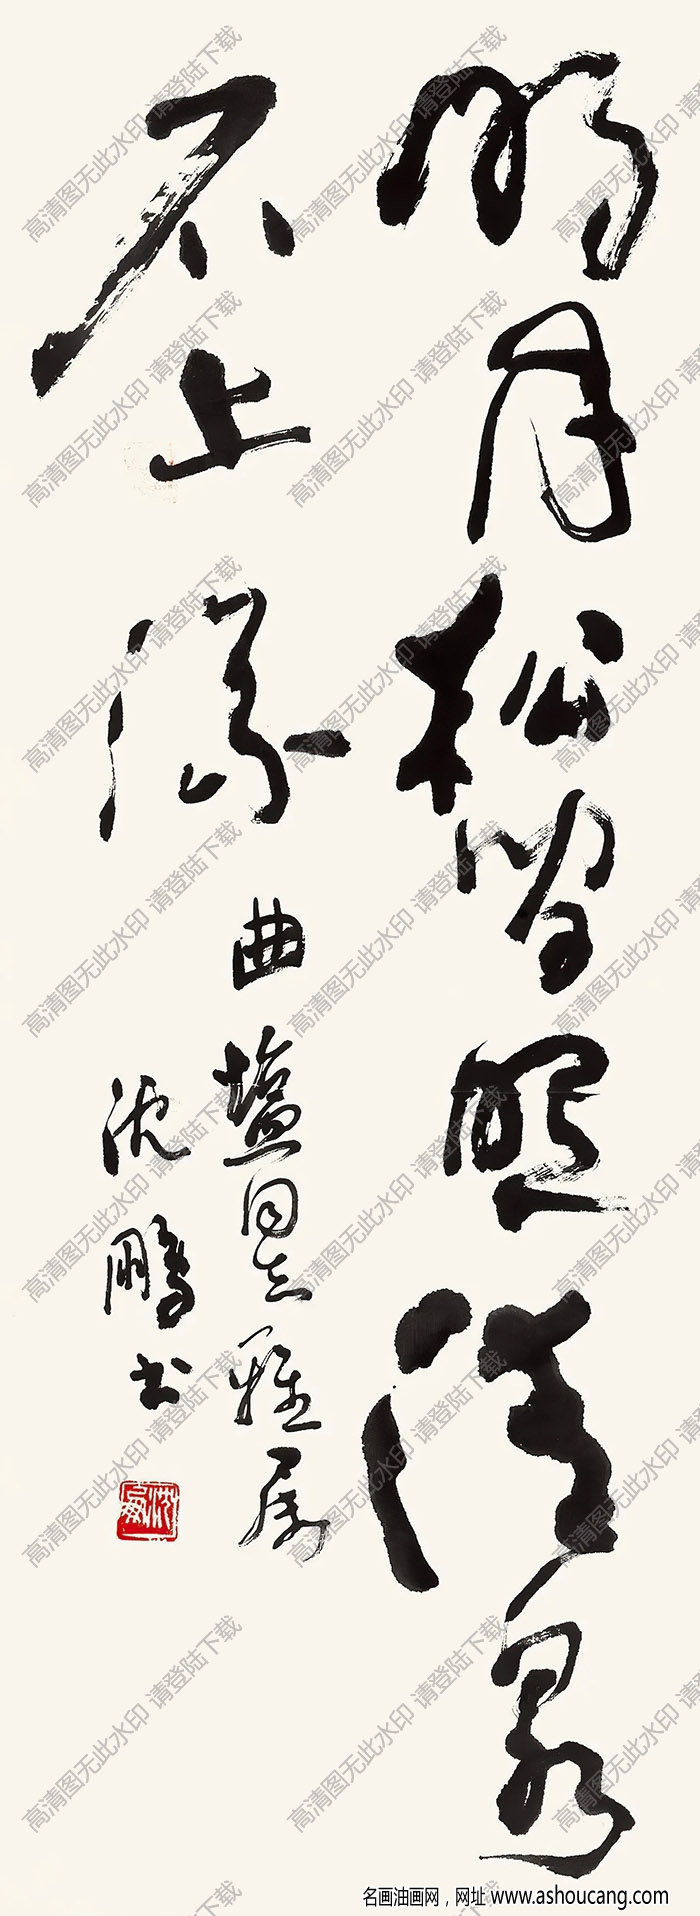 明月松間照清泉
石上流
曲同志雅属
沈鹏书
高清图无此水印 请登陆下载
名画油画网，网址 www.ashoucang.com